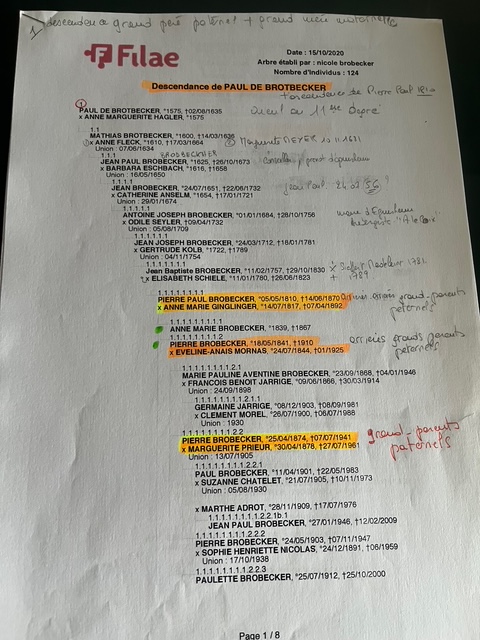 1 descendence grand père paternel + grand mère maternelle
Filae
Date : 15/10/2020
Arbre établi par : nicole brobecker
Nombre d'individus : 124
Descendance de PAUL DE BROTBECKER
+ descendance de Pierre Paul 1810
1
PAUL DE BROTBECKER, *1575, †02/08/1635
x ANNE MARGUERITE HAGLER, *1575
aieul au 11eme degré
1.1
MATHIAS BROTBECKER, *1600, †14/03/1636
x ANNE FLECK, *1610, †17/03/1664
Union : 07/06/1634
Marguerite MEYER
BROBECKER
1.1.1
JEAN PAUL BROBECKER, *1625, †26/10/1673
x BARBARA ESCHBACH, *1616, †1658
Union : 16/05/1650
1.1.1.1
JEAN BROBECKER, *24/07/1651, †22/08/1732
x CATHERINE ANSELM, *1654, †17/01/1721
Union : 29/01/1674
Jean Paul 24 02 56
1.1.1.1.1
ANTOINE JOSEPH BROBECKER, *01/01/1684, †28/10/1756
x ODILE SEYLER, †09/04/1732
Union : 05/08/1709
1.1.1.1.1.1
JEAN JOSEPH BROBECKER, *24/03/1712, †18/01/1781
x GERTRUDE KOLB, *1722, †1789
Union : 04/11/1754
1.1.1.1.1.1.1
Jean Baptiste BROBECKER, *11/02/1757, †29/10/1830
x ELISABETH SCHIELE, *11/01/1780, †26/06/1823
1789
1.1.1.1.1.1.1.1
PIERRE PAUL BROBECKER, *05/05/1810, †14/06/1870
x ANNE MARIE GINGLINGER, *14/07/1817, †07/04/1892
arrières arrières grand-parents
paternels
1.1.1.1.1.1.1.1.1
ANNE MARIE BROBECKER, *1839, †1867
1.1.1.1.1.1.1.1.2
PIERRE BROBECKER, *18/05/1841, †1910
x EVELINE-ANAIS MORNAS, *24/07/1844, †01/1925
arrières grands parents
paternels
1.1.1.1.1.1.1.1.2.1
MARIE PAULINE AVENTINE BROBECKER, *23/09/1868, †04/01/1946
x FRANCOIS BENOIT JARRIGE, *09/06/1866, †30/03/1914
Union : 24/09/1898
1.1.1.1.1.1.1.1.2.1.1
GERMAINE JARRIGE, *08/12/1903, †08/09/1981
x CLEMENT MOREL, *26/07/1900, †06/07/1988
Union : 1930
1.1.1.1.1.1.1.1.2.2
PIERRE BROBECKER, *25/04/1874, †07/07/1941
x MARGUERITE PRIEUR, *30/04/1878, †27/07/1961
Union : 13/07/1905
grand-parents
paternels
1.1.1.1.1.1.1.1.2.2.1
PAUL BROBECKER, *11/04/1901, †22/05/1983
x SUZANNE CHATELET, *21/07/1905, †10/11/1973
Union : 05/08/1930
x MARTHE ADROT, *28/11/1909, †17/07/1976
1.1.1.1.1.1.1.1.2.2.1b.1
JEAN PAUL BROBECKER, *27/01/1946, †12/02/2009
1.1.1.1.1.1.1.1.2.2.2
PIERRE BROBECKER, *24/05/1903, †07/11/1947
x SOPHIE HENRIETTE NICOLAS, *24/12/1891, †06/1959
Union : 17/10/1938
1.1.1.1.1.1.1.1.2.2.3
PAULETTE BROBECKER, *25/07/1912, †25/10/2000
Page 1 / 8